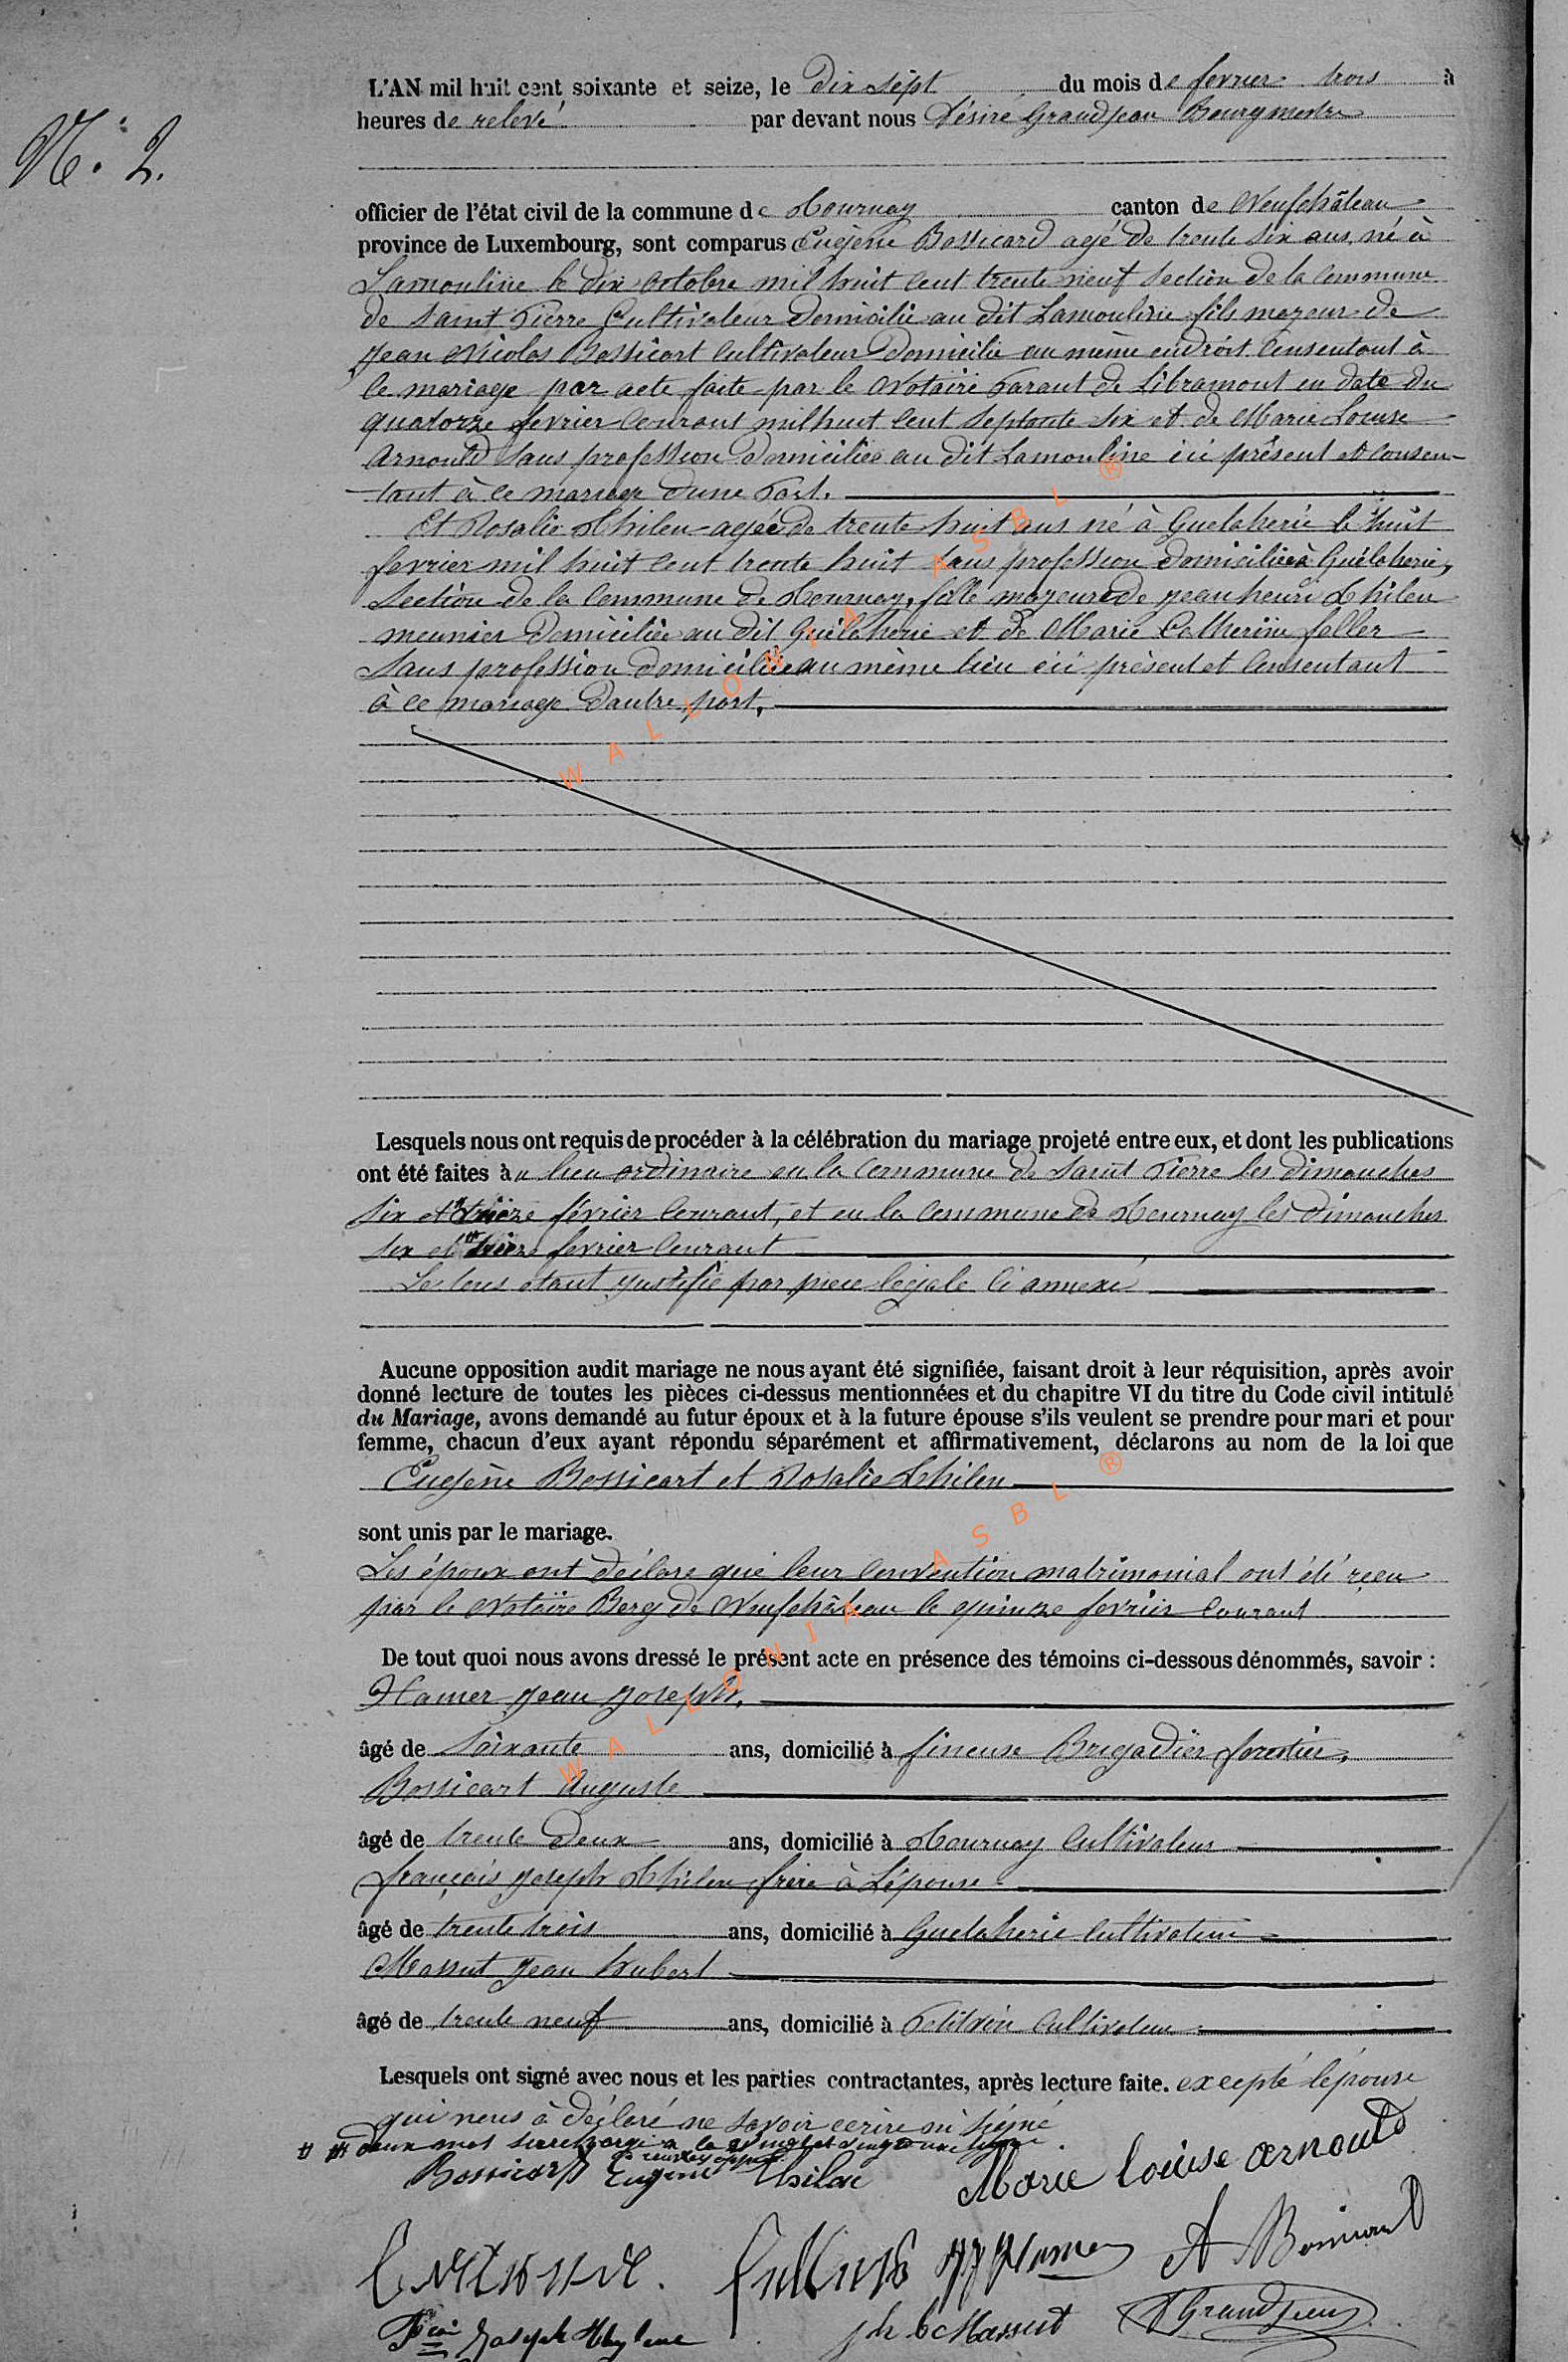 N.º 2.
L'AN mil huit cent soixante et seize, le dix sept du mois de fevrier trois à
heures de relevé par devant nous Désiré Grandjean Bourgmestre
officier de l'état civil de la commune de Tournay canton de Neufchâteau
province de Luxembourg, sont comparus Eugène Bossicard agé de trente six ans né à
Lamouline le dix octobre mil huit cent trente neuf section de la commune
de Saint Pierre Cultivateur domicilié au dit Lamouline fils majeur de
Jean Nicolas Bossicart Cultivateur domicilié au même endroit consentant à
ce mariage par acte faite par le Notaire de Libramont en date du
quatorze fevrier courant mil huit cent septante six et de Marie Louise
Arnould sans profession domiciliée au dit Lamouline ici présent et consen-
tant à ce mariage d'une part.
Et Rosalie Thilen agée de trente huit ans né à Guelaherie le huit
fevrier mil huit cent trente huit sans profession domiciliée à Guélaherie,
section de la commune de Tournay, fille majeure de jean henri Thilen
meunier domiciliée au dit Guélaherie et de Marie Catherine feller
sans profession domiciliée au même lieu ici présent et consentant
à ce mariage d'autre part,
Lesquels nous ont requis de procéder à la célébration du mariage projeté entre eux, et dont les publications
ont été faites au lieu ordinaire en la commune de Saint Pierre les dimanches
six et treize février courant, et en la commune de Tournay les dimanches
six et treize fevrier courant
Le tous étant justifié par piece légale ci annexé
Aucune opposition audit mariage ne nous ayant été signifiée, faisant droit à leur réquisition, après avoir
donné lecture de toutes les pièces ci-dessus mentionnées et du chapitre VI du titre du Code civil intitulé
du Mariage, avons demandé au futur époux et à la future épouse s'ils veulent se prendre pour mari et pour
femme, chacun d'eux ayant répondu séparément et affirmativement, déclarons au nom de la loi que
Eugène Bossicart et Rosalie Thilen
sont unis par le mariage.
Les époux ont déclaré que leur convention matrimonial ont été reçu
par le Notaire Berg de Neufchâteau le quinze fevrier courant
De tout quoi nous avons dressé le présent acte en présence des témoins ci-dessous dénommés, savoir :
Hamer Jean Joseph,
âgé de soixante ans, domicilié à fineuse Brigadier forestier,
Bossicart Auguste
âgé de trente deux ans, domicilié à Tournay Cultivateur
françois Joseph Thilen frère à L'épouse
âgé de trente trois ans, domicilié à Guelaherie Cultivateur
Massut Jean hubert
âgé de trente neuf ans, domicilié à Petitvoir Cultivateur
Lesquels ont signé avec nous et les parties contractantes, après lecture faite. excepté l'épouse
qui nous à déclaré ne savoir ecrire ni signé
Bossicart Eugene Thilen Marie louise arnould
JJ Hamer A Bossicart
Massut Grandjean
WALLONIA ASBL ®
WALLONIA ASBL ®